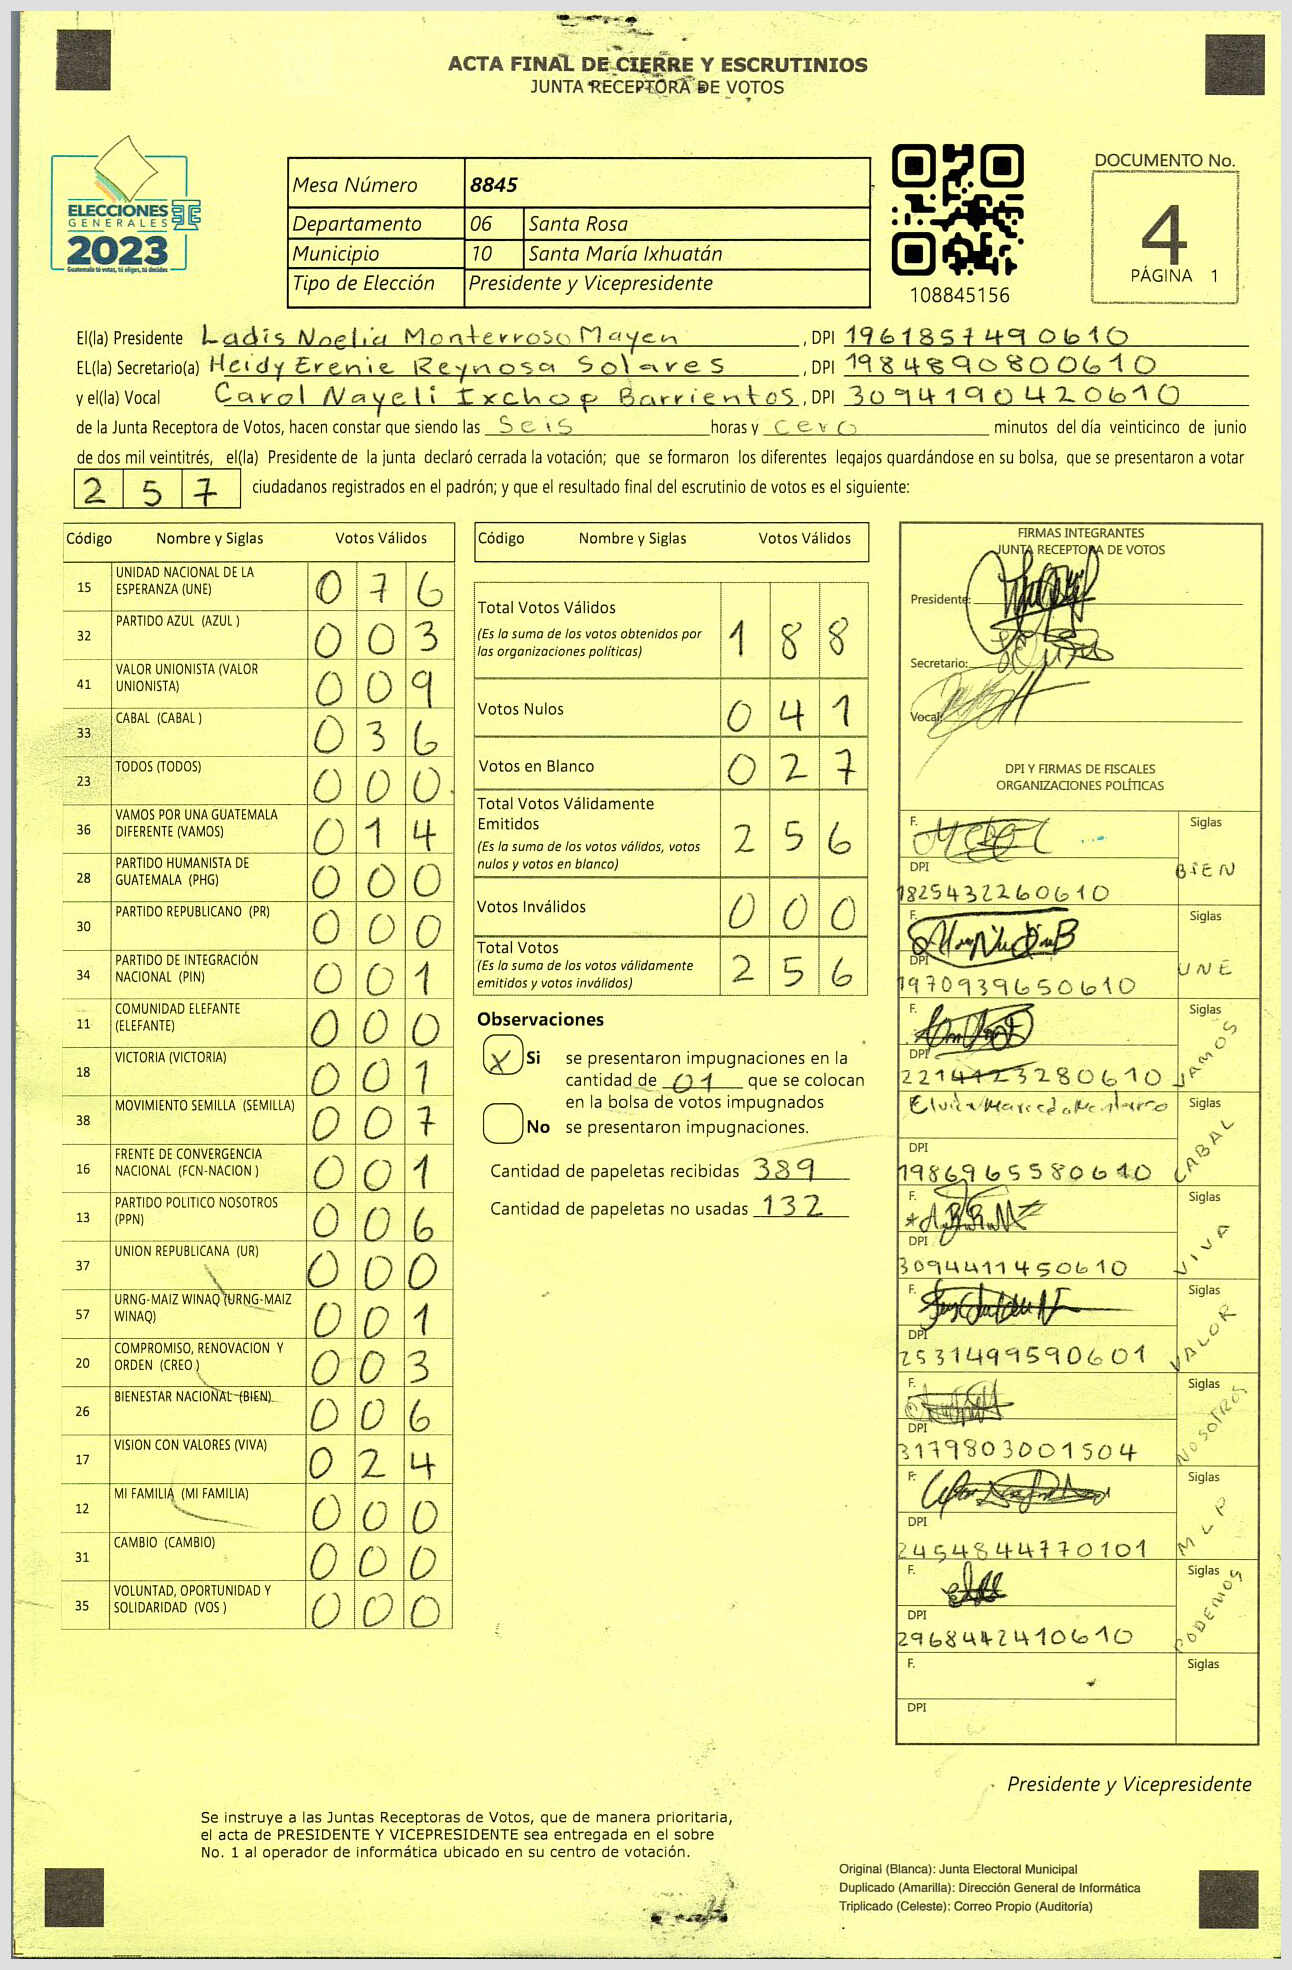 ACTA FINAL DE CIERRE Y ESCRUTINIOS
JUNTA RECEPTORA DE VOTOS
ELECCIONES
GENERALES
2023
Guatemala tú votas, tú eliges, tú decides
Mesa Número 8845
Departamento 06 Santa Rosa
Municipio 10 Santa María Ixhuatán
Tipo de Elección Presidente y Vicepresidente
108845156
DOCUMENTO No.
4
PÁGINA 1
El(la) Presidente Ladis Noelia Monterroso Mayen, DPI 1961857490610
EL(la) Secretario(a) Heidy Erenie Reynosa Solares, DPI 1984890800610
y el(la) Vocal Carol Nayeli Ixchop Barrientos, DPI 3094190420610
de la Junta Receptora de Votos, hacen constar que siendo las Seis horas y cero minutos del día veinticinco de junio
de dos mil veintitrés, el(la) Presidente de la junta declaró cerrada la votación; que se formaron los diferentes legajos guardándose en su bolsa, que se presentaron a votar
257 ciudadanos registrados en el padrón; y que el resultado final del escrutinio de votos es el siguiente:
Código Nombre y Siglas Votos Válidos
15 UNIDAD NACIONAL DE LA ESPERANZA (UNE) 076
32 PARTIDO AZUL (AZUL ) 003
41 VALOR UNIONISTA (VALOR UNIONISTA) 009
33 CABAL (CABAL ) 036
23 TODOS (TODOS) 000
36 VAMOS POR UNA GUATEMALA DIFERENTE (VAMOS) 014
28 PARTIDO HUMANISTA DE GUATEMALA (PHG) 000
30 PARTIDO REPUBLICANO (PR) 000
34 PARTIDO DE INTEGRACIÓN NACIONAL (PIN) 001
11 COMUNIDAD ELEFANTE (ELEFANTE) 000
18 VICTORIA (VICTORIA) 001
38 MOVIMIENTO SEMILLA (SEMILLA) 007
16 FRENTE DE CONVERGENCIA NACIONAL (FCN-NACION ) 001
13 PARTIDO POLITICO NOSOTROS (PPN) 006
37 UNION REPUBLICANA (UR) 000
57 URNG-MAIZ WINAQ (URNG-MAIZ WINAQ) 001
20 COMPROMISO, RENOVACION Y ORDEN (CREO ) 003
26 BIENESTAR NACIONAL (BIEN) 006
17 VISION CON VALORES (VIVA) 024
12 MI FAMILIA (MI FAMILIA) 000
31 CAMBIO (CAMBIO) 000
35 VOLUNTAD, OPORTUNIDAD Y SOLIDARIDAD (VOS ) 000
Código Nombre y Siglas Votos Válidos
Total Votos Válidos 188
(Es la suma de los votos obtenidos por
las organizaciones políticas)
Votos Nulos 041
Votos en Blanco 027
Total Votos Válidamente
Emitidos 256
(Es la suma de los votos válidos, votos
nulos y votos en blanco)
Votos Inválidos 000
Total Votos 256
(Es la suma de los votos válidamente
emitidos y votos inválidos)
Observaciones
X Si se presentaron impugnaciones en la
cantidad de 01 que se colocan
en la bolsa de votos impugnados
No se presentaron impugnaciones.
Cantidad de papeletas recibidas 389
Cantidad de papeletas no usadas 132
FIRMAS INTEGRANTES
JUNTA RECEPTORA DE VOTOS
Presidente:
Secretario:
Vocal:
DPI Y FIRMAS DE FISCALES
ORGANIZACIONES POLÍTICAS
F. Siglas
DPI BIEN
1825432260610
F. Siglas
DPI UNE
1970939650610
F. Siglas
DPI VAMOS
2214123280610
Siglas
DPI CABAL
1986965580610
F. Siglas
DPI VIVA
3094411450610
F. Siglas
DPI VALOR
2531499590601
F. Siglas
DPI NOSOTROS
3179803001504
F. Siglas
DPI MLP
2454844770101
F. Siglas
DPI PODEMOS
2968442410610
F. Siglas
DPI
Presidente y Vicepresidente
Se instruye a las Juntas Receptoras de Votos, que de manera prioritaria,
el acta de PRESIDENTE Y VICEPRESIDENTE sea entregada en el sobre
No. 1 al operador de informática ubicado en su centro de votación.
Original (Blanca): Junta Electoral Municipal
Duplicado (Amarilla): Dirección General de Informática
Triplicado (Celeste): Correo Propio (Auditoría)